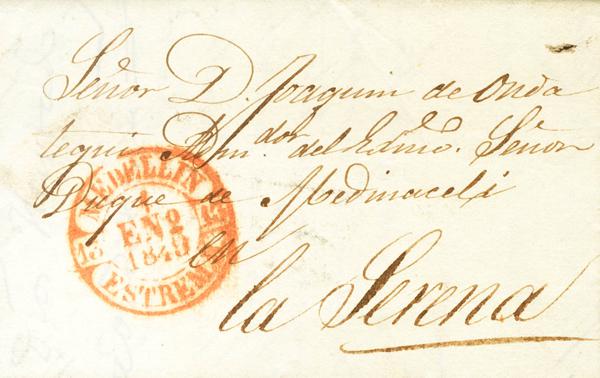 Señor D. Joaquin de Onda
tegui Adm.dor del Exmo. Señor
Duque de Medinaceli
en
la Serena
MEDELLIN
13
ENº
1849
ESTREM